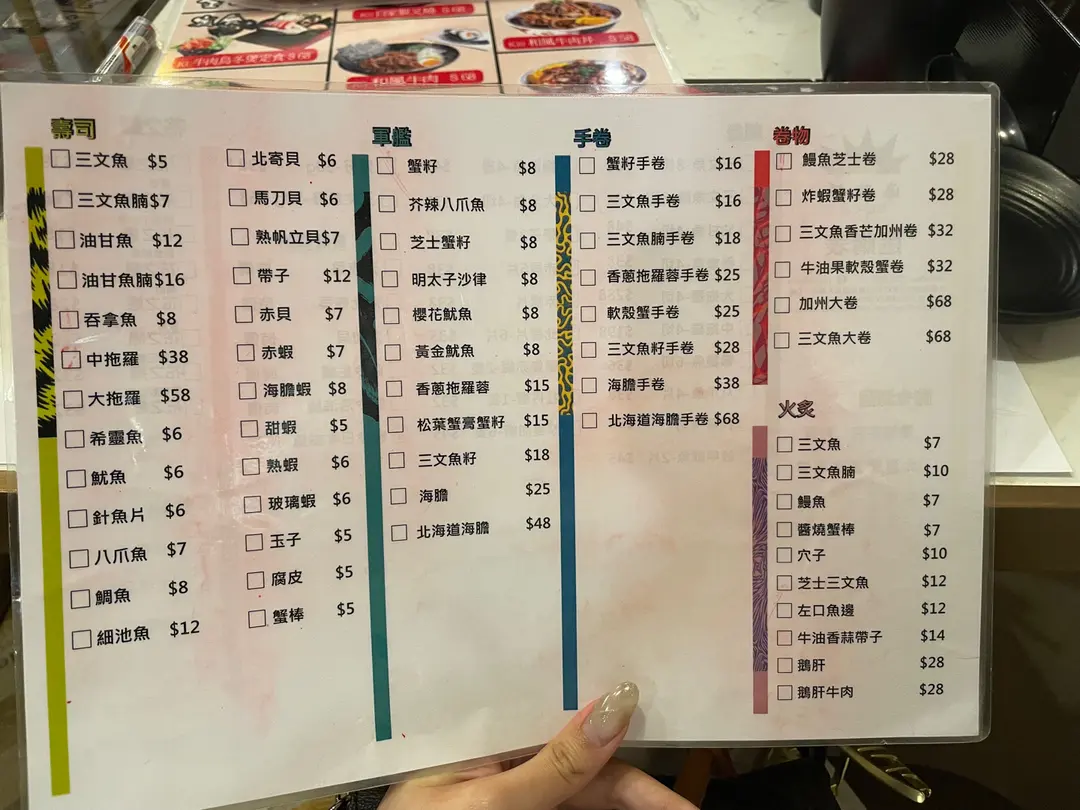 牛肉烏冬煲定食 $68
和風牛肉 $68
和風牛肉丼
壽司
三文魚 $5
三文魚腩 $7
油甘魚 $12
油甘魚腩 $16
吞拿魚 $8
中拖羅 $38
大拖羅 $58
希靈魚 $6
魷魚 $6
針魚片 $6
八爪魚 $7
鯛魚 $8
細池魚 $12
北寄貝 $6
馬刀貝 $6
熟帆立貝 $7
帶子 $12
赤貝 $7
赤蝦 $7
海膽蝦 $8
甜蝦 $5
熟蝦 $6
玻璃蝦 $6
玉子 $5
腐皮 $5
蟹棒 $5
軍艦
蟹籽 $8
芥辣八爪魚 $8
芝士蟹籽 $8
明太子沙律 $8
櫻花魷魚 $8
黃金魷魚 $8
香蔥拖羅蓉 $15
松葉蟹膏蟹籽 $15
三文魚籽 $18
海膽 $25
北海道海膽 $48
手卷
蟹籽手卷 $16
三文魚手卷 $16
三文魚腩手卷 $18
香蔥拖羅蓉手卷 $25
軟殼蟹手卷 $25
三文魚籽手卷 $28
海膽手卷 $38
北海道海膽手卷 $68
卷物
鰻魚芝士卷 $28
炸蝦蟹籽卷 $28
三文魚香芒加州卷 $32
牛油果軟殼蟹卷 $32
加州大卷 $68
三文魚大卷 $68
火炙
三文魚 $7
三文魚腩 $10
鰻魚 $7
醬燒蟹棒 $7
穴子 $10
芝士三文魚 $12
左口魚邊 $12
牛油香蒜帶子 $14
鵝肝 $28
鵝肝牛肉 $28